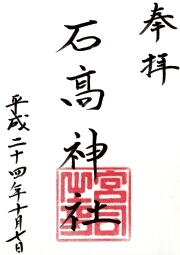 奉拝
石高神社
平成二十四年十月七日